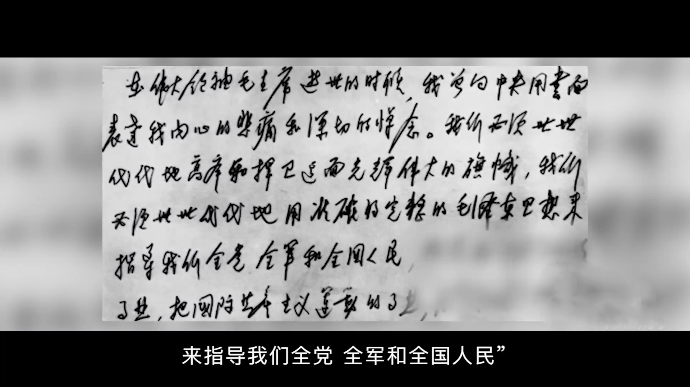 在伟大领袖毛主席逝世的时候，我曾向中央用书面
表达我内心的悲痛和深切的悼念。我们必须世世
代代地高举和捍卫这面光辉伟大的旗帜，我们
必须世世代代地用准确的完整的毛泽东思想来
指导我们全党 全军和全国人民，
事业，把国际共产主义运动的事业，
来指导我们全党 全军和全国人民”